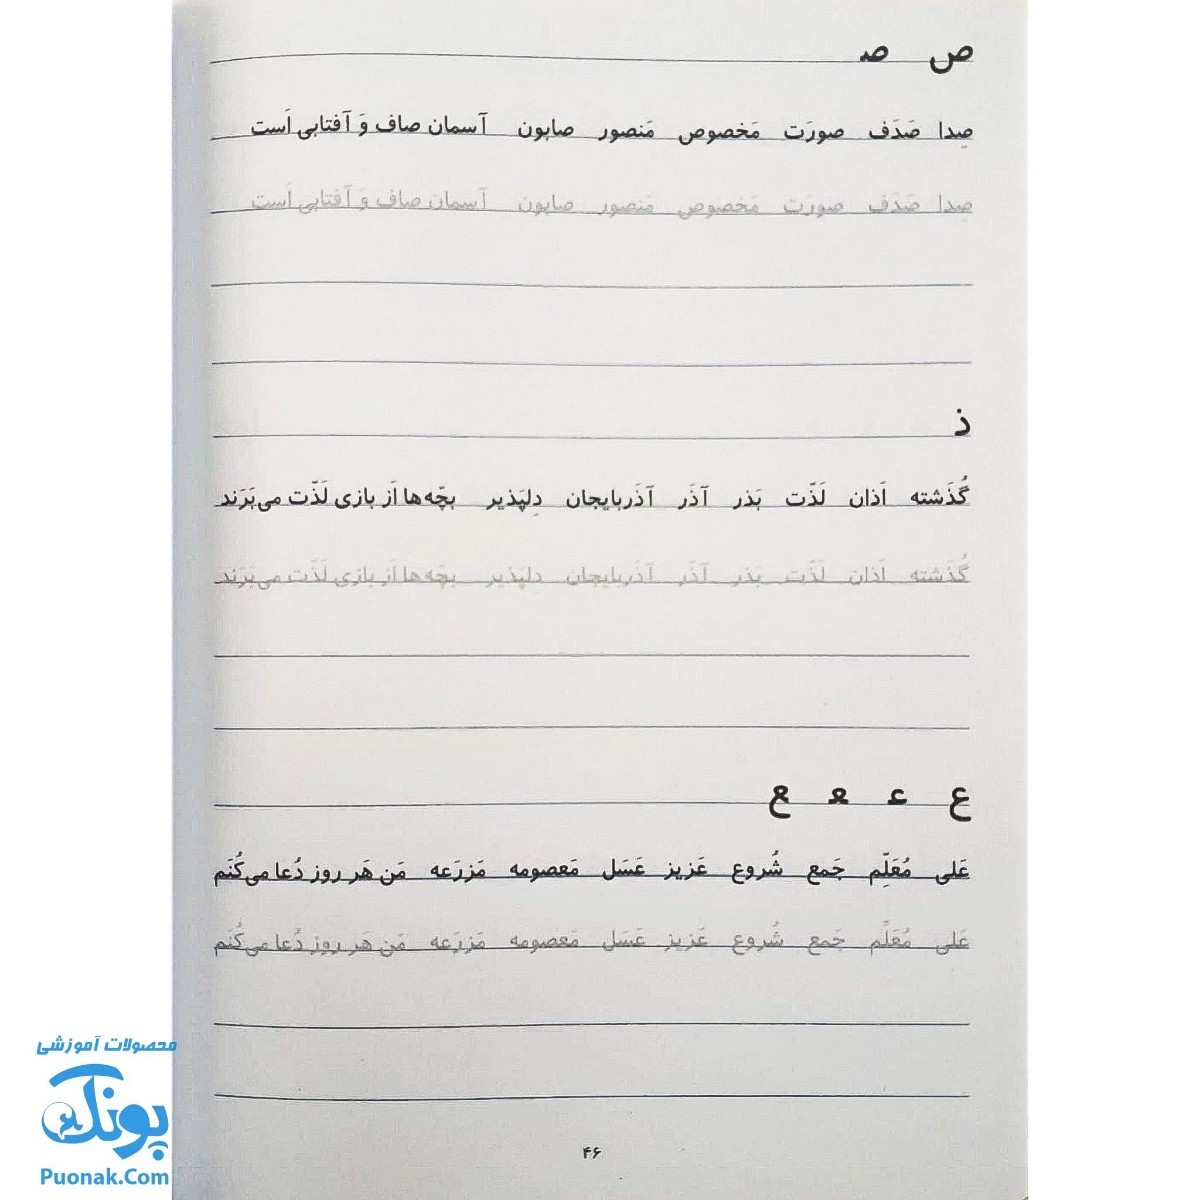 ص صـ
صِدا صَدَف صورَت مَخصوص مَنصور صابون آسمان صاف وَ آفتابی اَست
صِدا صَدَف صورَت مَخصوص مَنصور صابون آسمان صاف وَ آفتابی اَست
ذ
گُذَشته اَذان لَذّت بَذر آذَر آذَربایجان دِلپَذیر بچّه‌ها اَز بازی لَذّت می‌بَرَند
گُذَشته اَذان لَذّت بَذر آذَر آذَربایجان دِلپَذیر بچّه‌ها اَز بازی لَذّت می‌بَرَند
ع عـ ـعـ ـع
عَلی مُعَلِّم جَمع شُروع عَزیز عَسَل مَعصومه مَزرَعه مَن هَر روز دُعا می‌کُنَم
عَلی مُعَلِّم جَمع شُروع عَزیز عَسَل مَعصومه مَزرَعه مَن هَر روز دُعا می‌کُنَم
۴۶
محصولات آموزشی
پونک
Puonak.Com